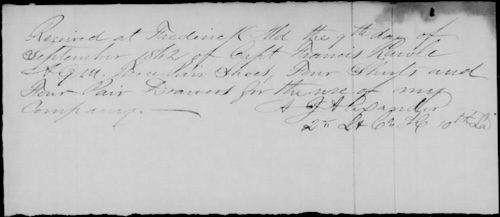 Received at Frederick Md the 9th day of
September 1862 of Capt Francis
A.Q.M. pair Shoes, Four Shirts and
Four Pair Drawers for the use of my
Company.
A J Alexander
2nd Lt Co 10th La